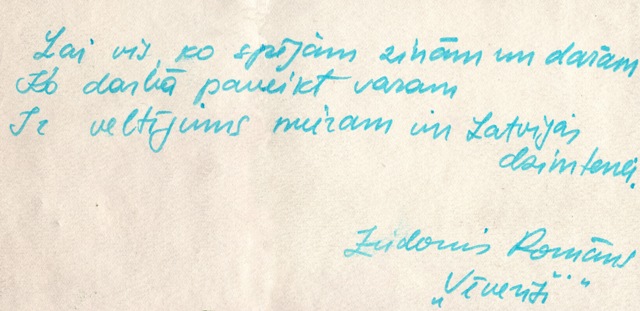 Lai vis, ko spējam zinām un daram
Ko darbā paveikt varam
Ir veltījums mieram un Latvijas
dzimtenei.
Zidonis Romāns
"Vēverīši"